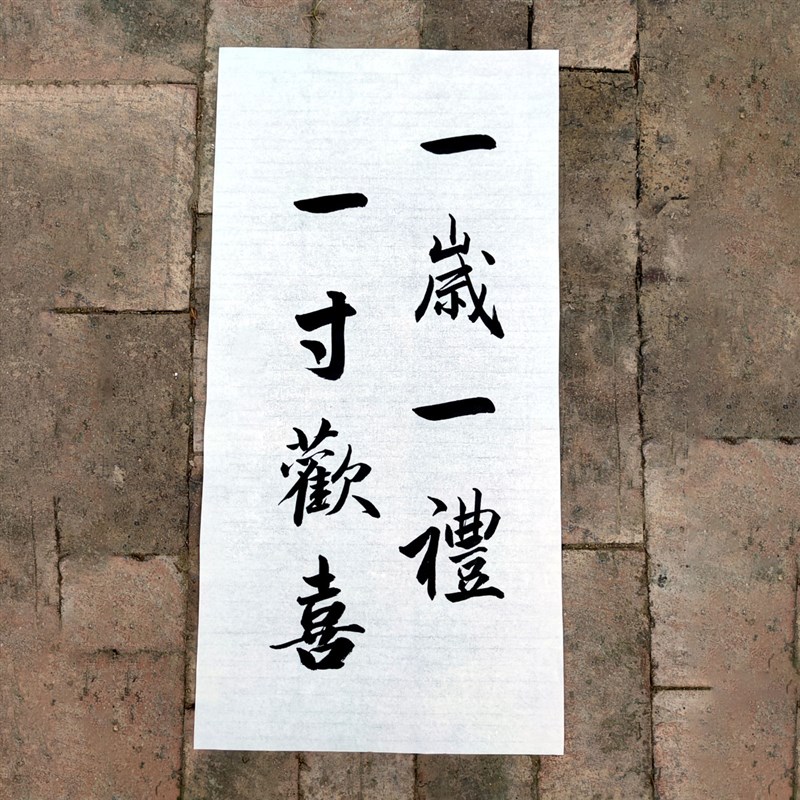 一歳一禮
一寸歡喜